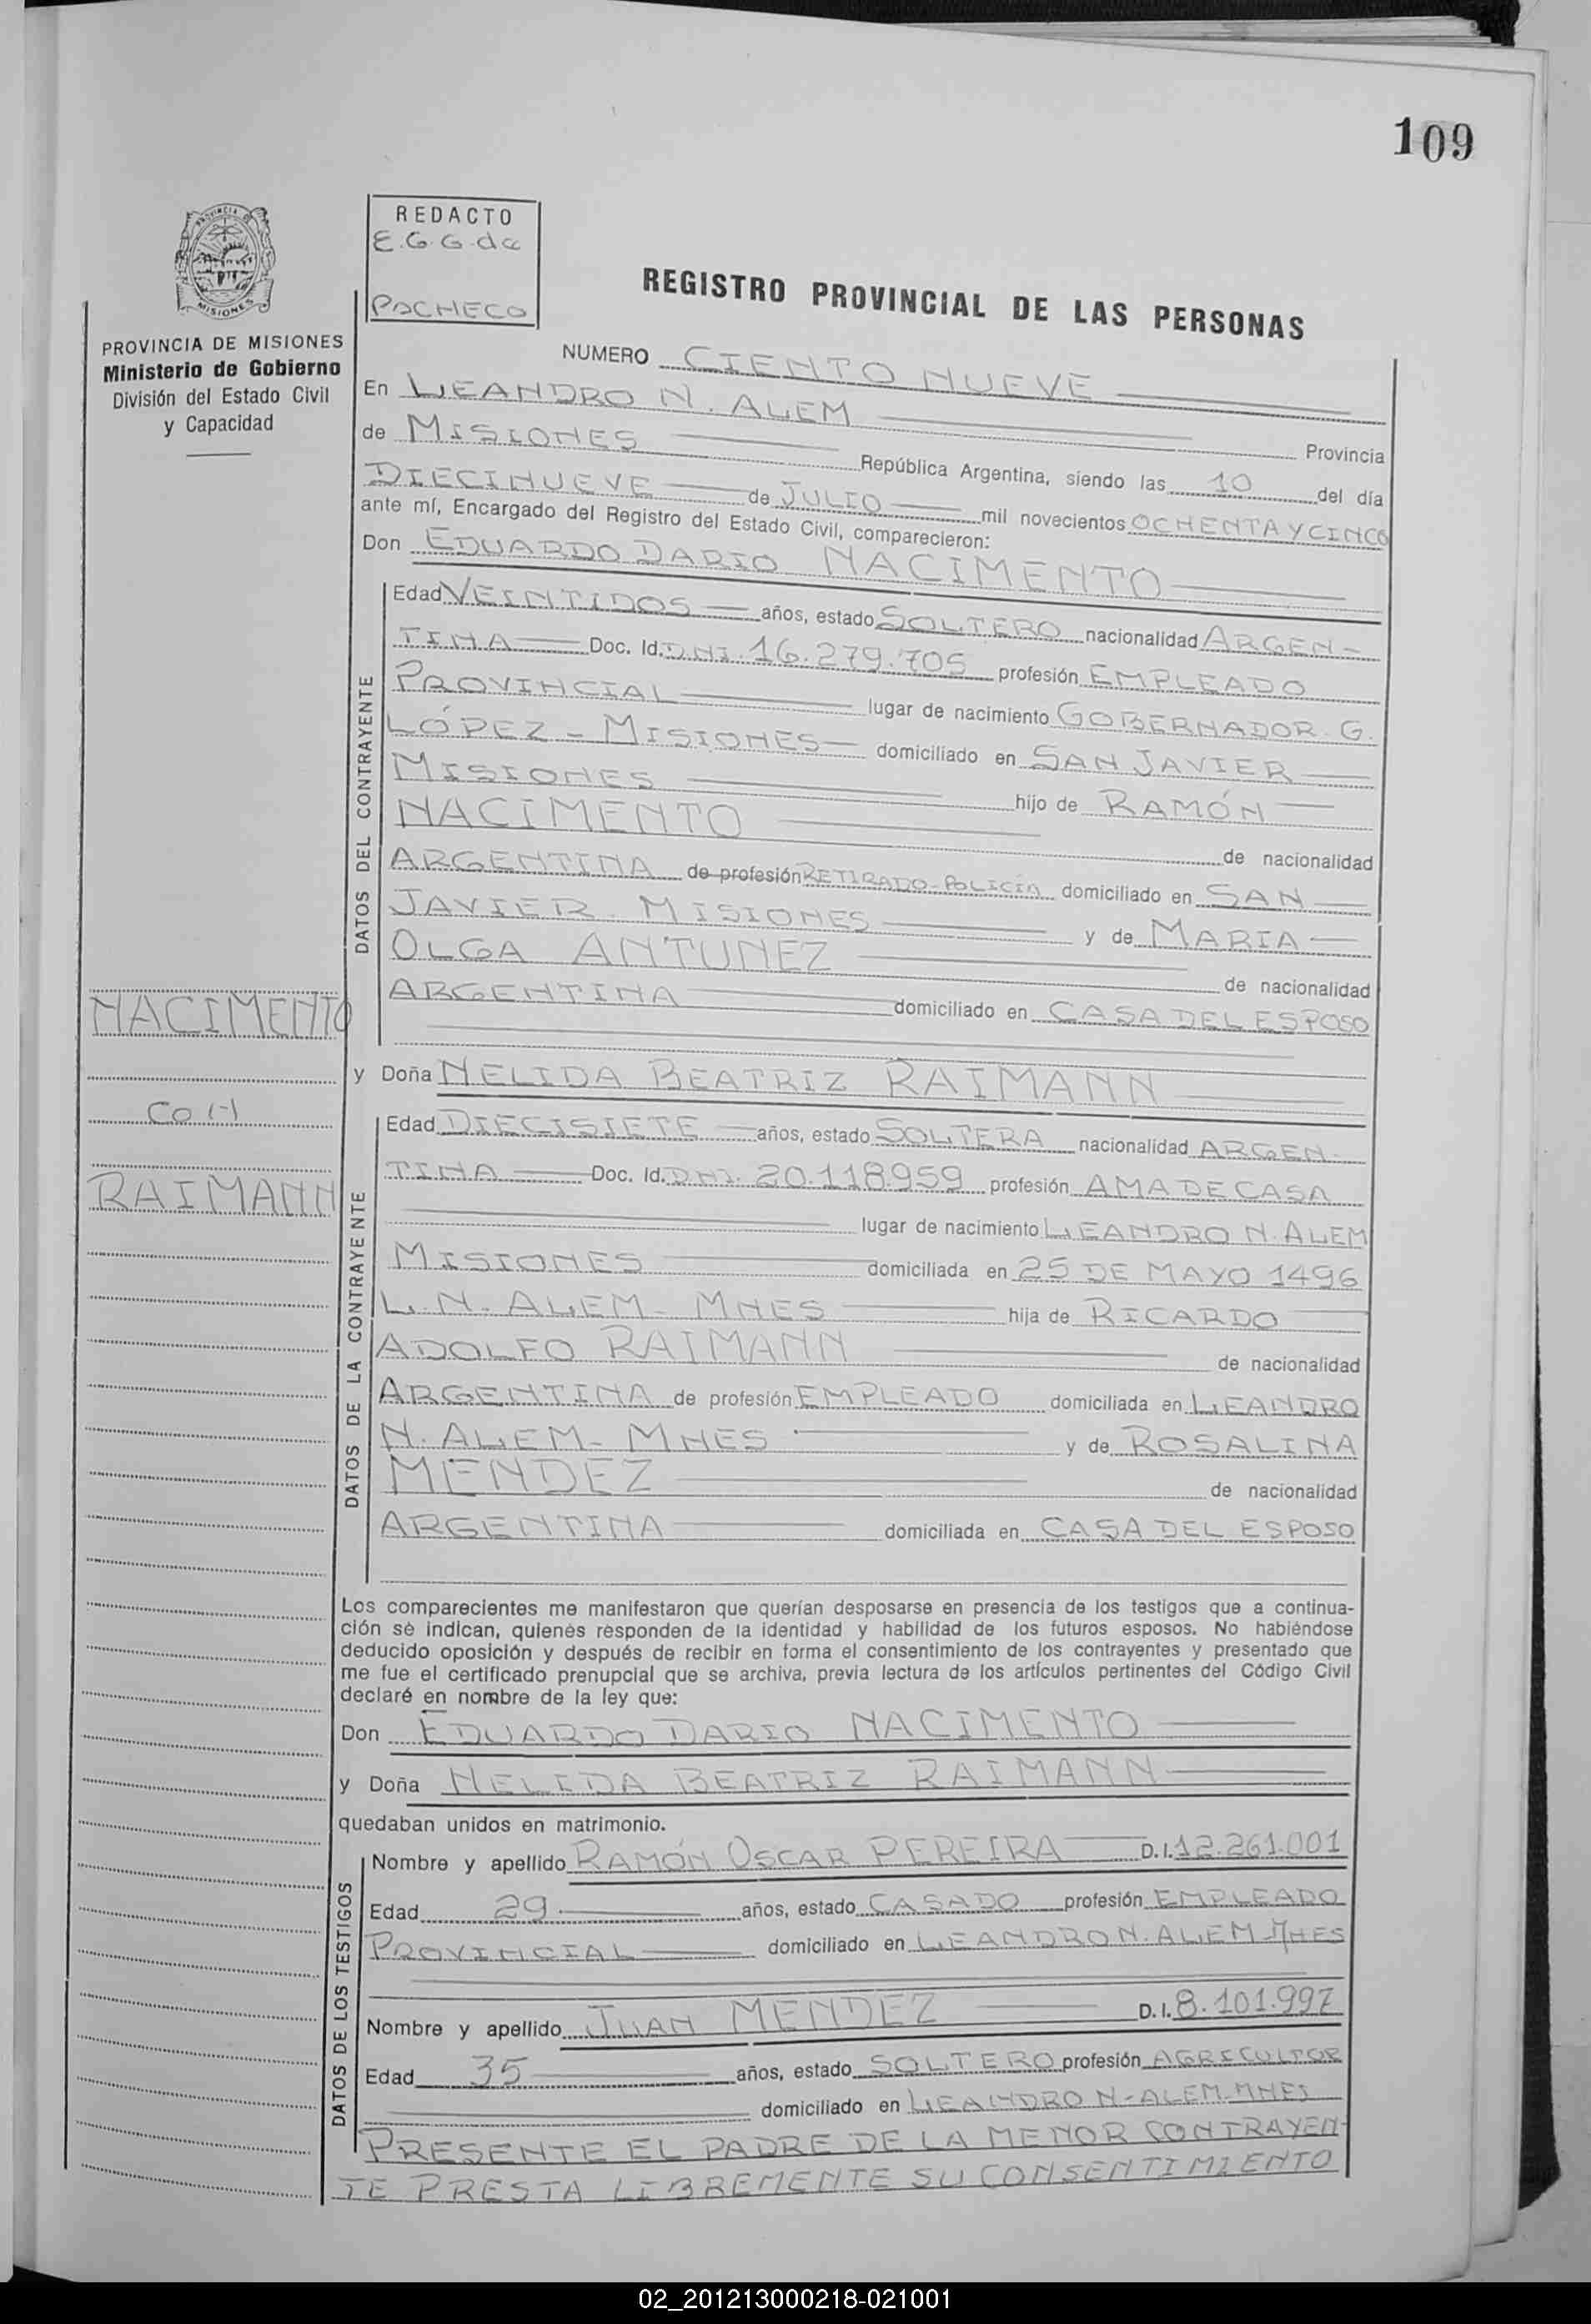 109
REDACTO
E.G.G. de
PACHECO
PROVINCIA DE MISIONES
Ministerio de Gobierno
División del Estado Civil
y Capacidad
REGISTRO PROVINCIAL DE LAS PERSONAS
NUMERO CIENTO NUEVE
En LEANDRO N. ALEM Provincia
de MISIONES República Argentina, siendo las 10 del día
DIECINUEVE de JULIO mil novecientos OCHENTA Y CINCO
ante mí, Encargado del Registro del Estado Civil, comparecieron:
Don EDUARDO DARIO NACIMENTO
DATOS DEL CONTRAYENTE
Edad VEINTIDOS años, estado SOLTERO nacionalidad ARGEN-
TINA Doc. Id. D.N.I. 16.279.705 profesión EMPLEADO
PROVINCIAL lugar de nacimiento GOBERNADOR G.
LÓPEZ - MISIONES domiciliado en SAN JAVIER
MISIONES hijo de RAMÓN
NACIMENTO de nacionalidad
ARGENTINA de profesión RETIRADO-POLICÍA domiciliado en SAN
JAVIER. MISIONES y de MARIA
OLGA ANTUNEZ de nacionalidad
ARGENTINA domiciliado en CASA DEL ESPOSO
NACIMENTO
Co (-)
RAIMANN
y Doña NELIDA BEATRIZ RAIMANN
DATOS DE LA CONTRAYENTE
Edad DIECISIETE años, estado SOLTERA nacionalidad ARGEN-
TINA Doc. Id. D.N.I. 20.118.959 profesión AMA DE CASA
lugar de nacimiento LEANDRO N. ALEM
MISIONES domiciliada en 25 DE MAYO 1496
L. N. ALEM - MNES hija de RICARDO
ADOLFO RAIMANN de nacionalidad
ARGENTINA de profesión EMPLEADO domiciliada en LEANDRO
N. ALEM - MNES y de ROSALINA
MENDEZ de nacionalidad
ARGENTINA domiciliada en CASA DEL ESPOSO
Los comparecientes me manifestaron que querían desposarse en presencia de los testigos que a continua-
ción se indican, quienes responden de la identidad y habilidad de los futuros esposos. No habiéndose
deducido oposición y después de recibir en forma el consentimiento de los contrayentes y presentado que
me fue el certificado prenupcial que se archiva, previa lectura de los artículos pertinentes del Código Civil
declaré en nombre de la ley que:
Don EDUARDO DARIO NACIMENTO
y Doña NELIDA BEATRIZ RAIMANN
quedaban unidos en matrimonio.
DATOS DE LOS TESTIGOS
Nombre y apellido RAMÓN OSCAR PEREIRA D.I. 12.261.001
Edad 29 años, estado CASADO profesión EMPLEADO
PROVINCIAL domiciliado en LEANDRO N. ALEM MNES
Nombre y apellido JUAN MENDEZ D.I. 8.101.997
Edad 35 años, estado SOLTERO profesión AGRICULTOR
domiciliado en LEANDRO N. ALEM - MNES
PRESENTE EL PADRE DE LA MENOR CONTRAYEN-
TE PRESTA LIBREMENTE SU CONSENTIMIENTO
02_201213000218-021001